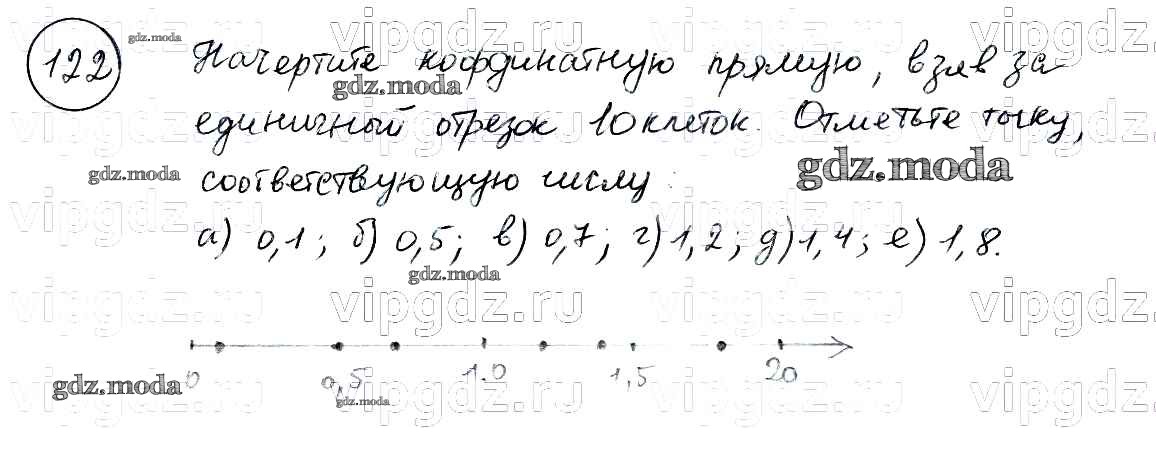 vipgdz.ru vipgdz.ru vipgdz.ru vipgdz
122 gdz.moda Начертите координатную прямую, взяв за
gdz.moda
единичный отрезок 10 клеток. Отметьте точку,
vipgdz.ru vipgdz.ru vipgdz.ru vipgdz
gdz.moda соответствующую числу: gdz.moda
vipgdz.ru vipgdz.ru vipgdz.ru vipgdz
а) 0,1; б) 0,5; в) 0,7; г) 1,2; д) 1,4; е) 1,8.
gdz.moda
vipgdz.ru vipgdz.ru vipgdz.ru vipgdz
0 0,5 1.0 1,5 20
gdz.moda gdz.moda
vipgdz.ru vipgdz.ru vipgdz.ru vipgdz